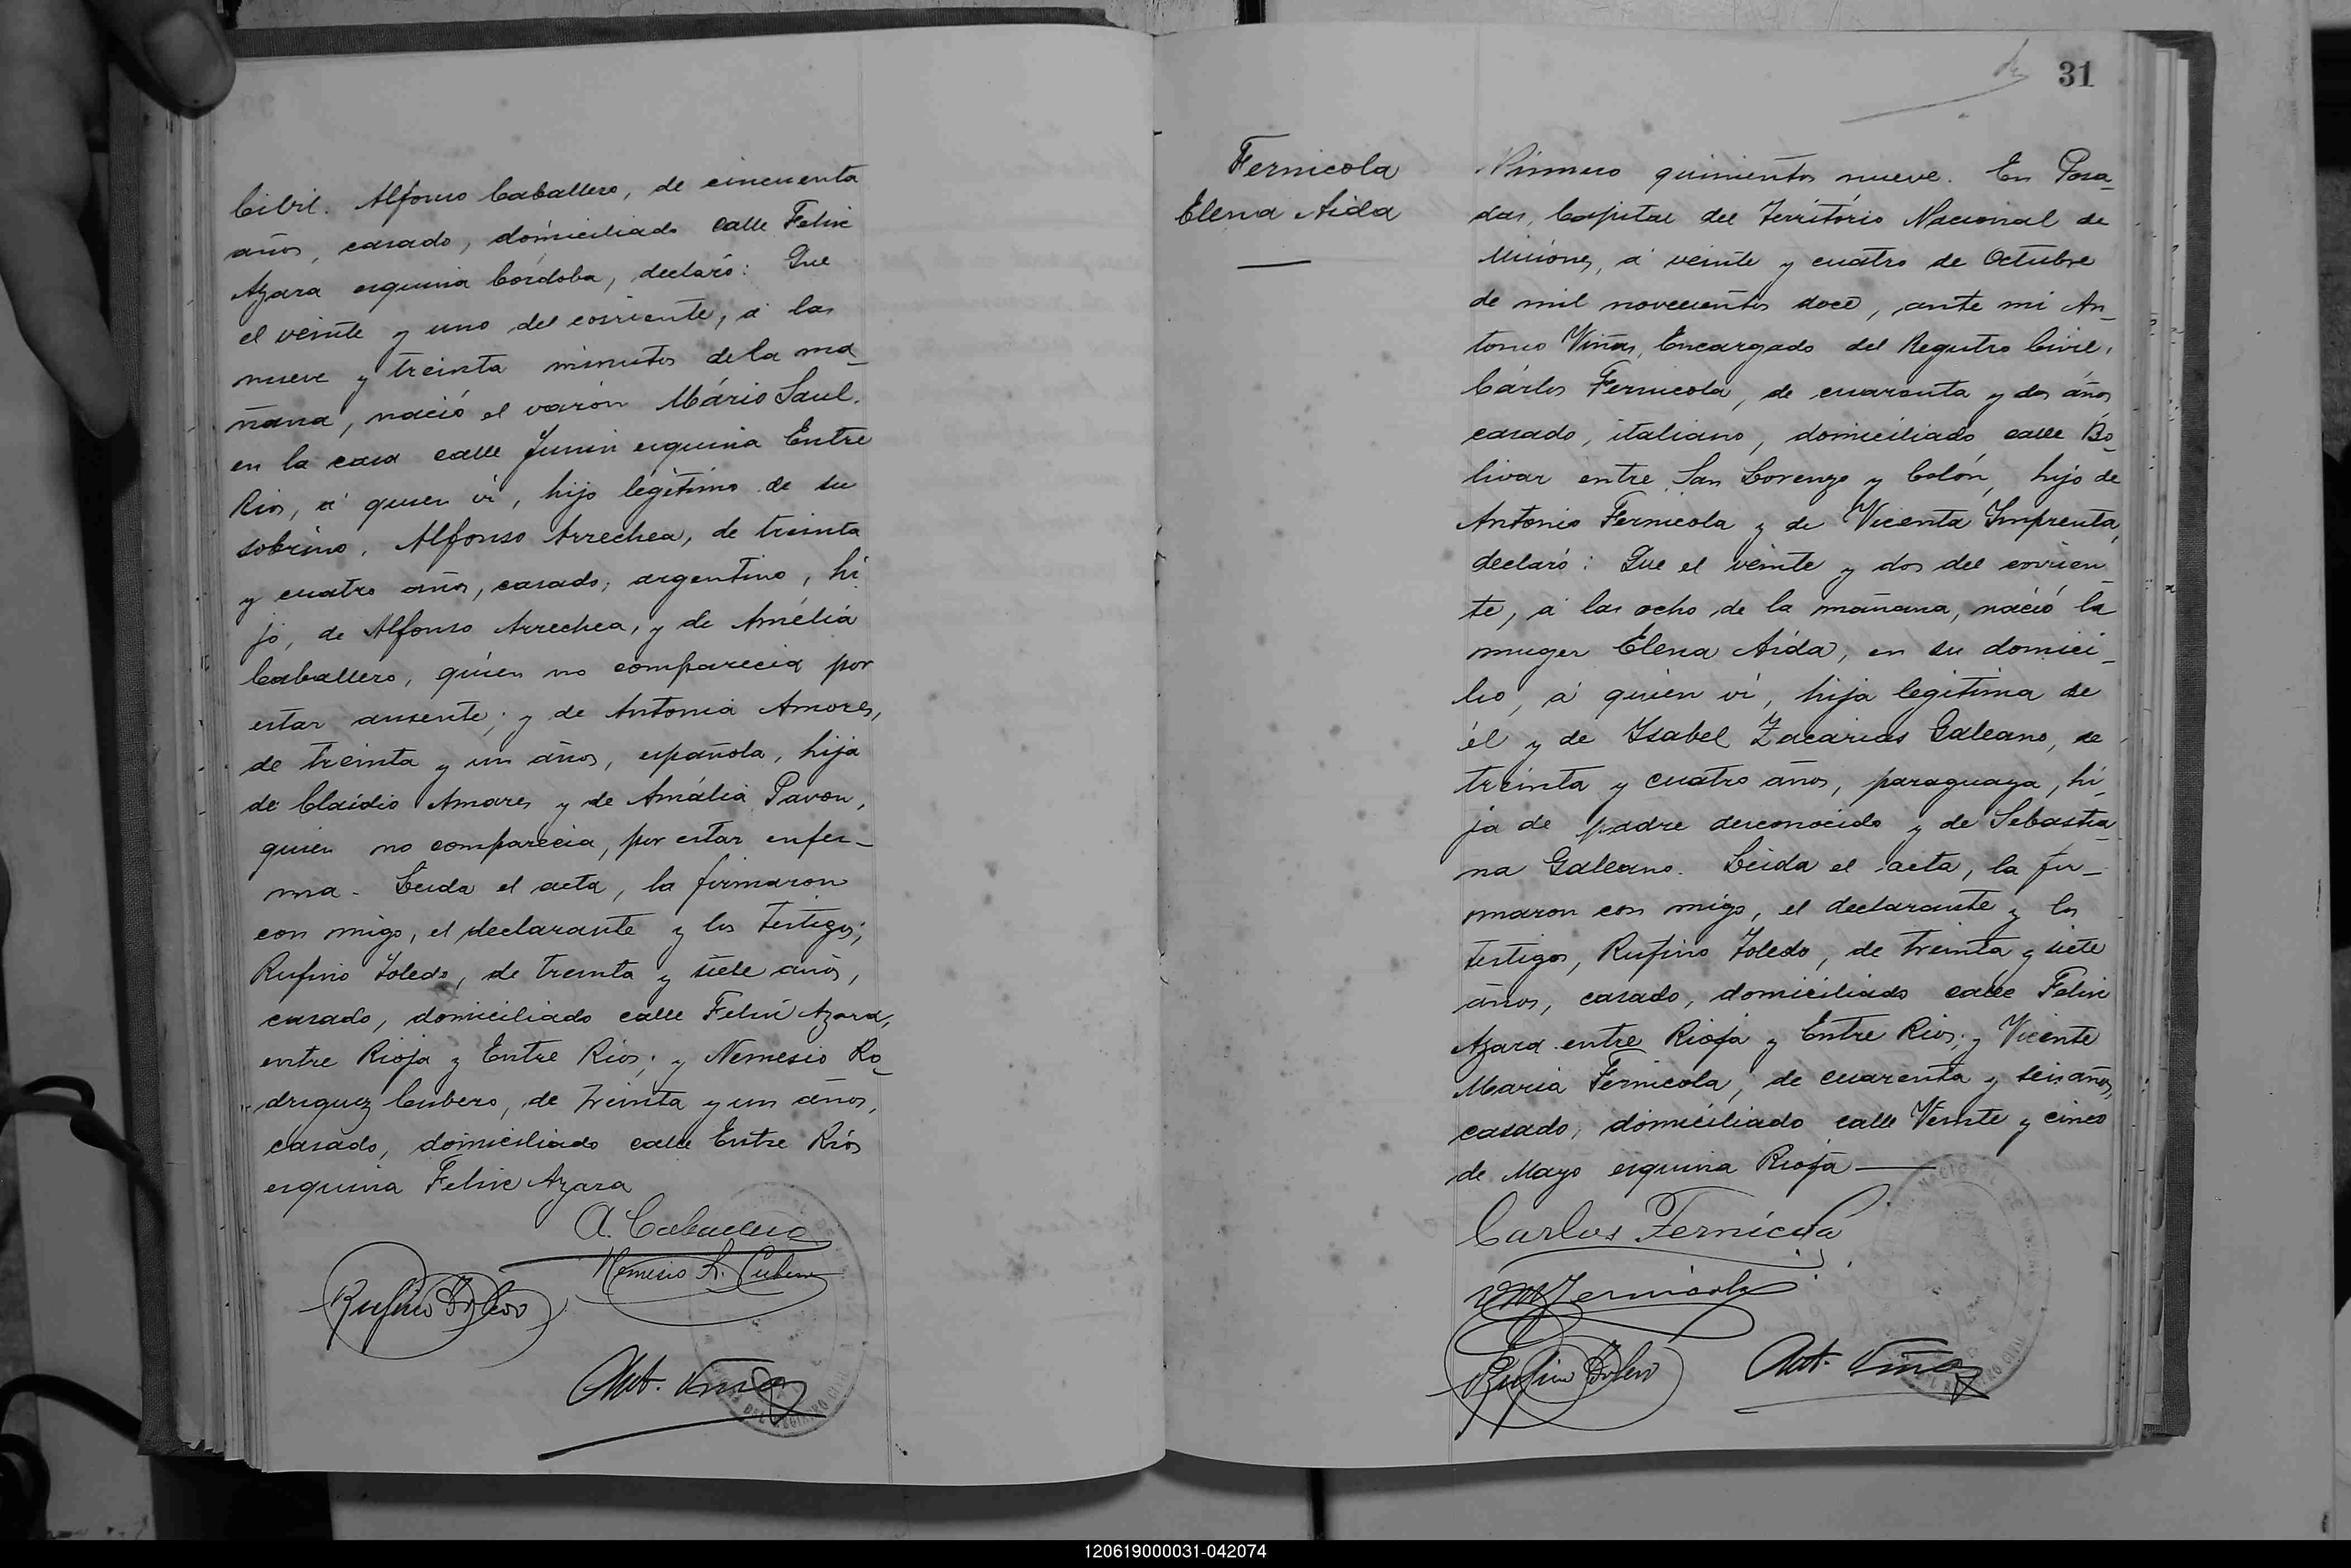 Cibil. Alfonso Caballero, de cincuenta
años, casado, domiciliado calle Felix
Azara esquina Córdoba, declaró: Que
el veinte y uno del corriente, á las
nueve y treinta minutos de la ma_
ñana, nació el varón Mário Saul.
en la casa calle Junin esquina Entre
Rios, á quien ví, hijo legítimo de su
sobrino, Alfonso Arrechea, de treinta
y cuatro años, casado, argentino, hi_
jo, de Alfonso Arrechea, y de Amélia
Caballero, quien no comparecia por
estar ausente; y de Antonia Amores,
de treinta y un años, española, hija
de Claidio Amares y de Amália Pavon,
quien no comparecia, por estar enfer_
ma. Leida el acta, la firmaron
con migo, el declarante y los testigos;
Rufino Toledo, de treinta y siete años,
casado, domiciliado calle Felix Azara,
entre Rioja y Entre Rios; y Nemesio Ro_
driguez Cubero, de treinta y un años,
casado, domiciliado calle Entre Rios
esquina Felix Azara
A. Caballero
Nemesio R. Cubero
Rufino Toledo
Ant. Viñas
31
Fernicola
Elena Aida
Número quinientos nueve. En Posa_
das, Capital del Território Nacional de
Misiones, á veinte y cuatro de Octubre
de mil novecientos doce, ante mi An_
tonio Viñas, Encargado del Registro Civil,
Cárlos Fernicola, de cuarenta y dos años
casado, italiano, domiciliado calle Bo_
livar entre San Lorenzo y Colón, hijo de
Antonio Fernicola y de Vicenta Imprenta,
declaró: Que el veinte y dos del corrien_
te, á las ocho de la mañana, nació la
muger Elena Aida, en su domici_
lio, á quien ví, hija legitima de
él y de Isabel Zacarias Galeano, de
treinta y cuatro años, paraguaya, hi_
ja de padre desconocido y de Sebastia_
na Galeano. Leida el acta, la fir_
maron con migo, el declarante y los
testigos, Rufino Toledo, de treinta y siete
años, casado, domiciliado calle Felix
Azara entre Rioja y Entre Rios; y Vicente
Maria Fernicola, de cuarenta y seis años,
casado, domiciliado calle Veinte y cinco
de Mayo esquina Rioja
Carlos Fernicola
VMFernicola
Rufino Toledo
Ant. Viñas
120619000031-042074